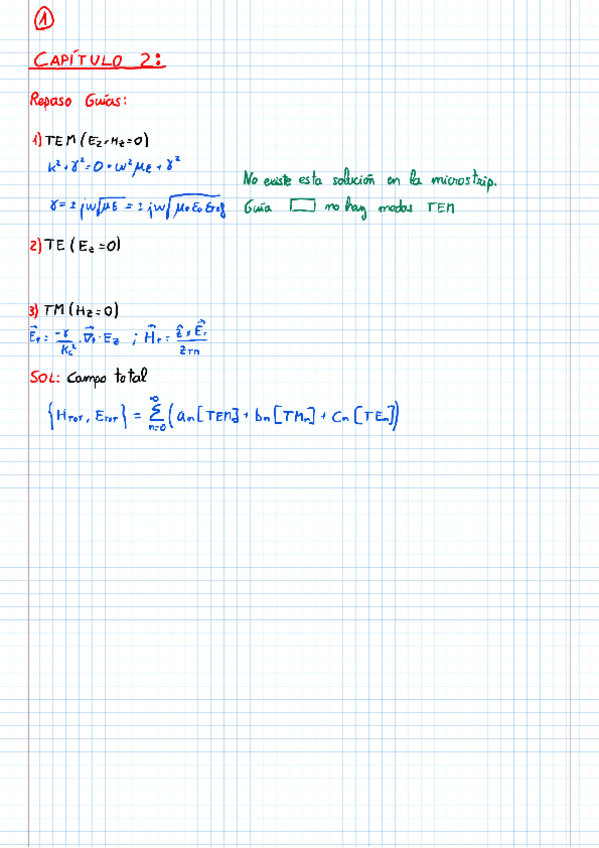 1
CAPÍTULO 2:
Repaso Guías:
1) TEM (Ez, Hz = 0)
k² + γ² = 0 = ω²με + γ²
No existe esta solución en la microstrip.
γ = ± jω√με = ± jω√μ₀ε₀εref
Guía ▭ no hay modos TEM
2) TE (Ez = 0)
3) TM (Hz = 0)
E⃗t = -γ/kc² · ∇⃗t · Ez ; H⃗t = ẑ × E⃗t / ZTM
SOL: Campo total
{HTOT, ETOT} = ∑n=0^∞ (an[TEM] + bn[TMn] + cn[TEn])